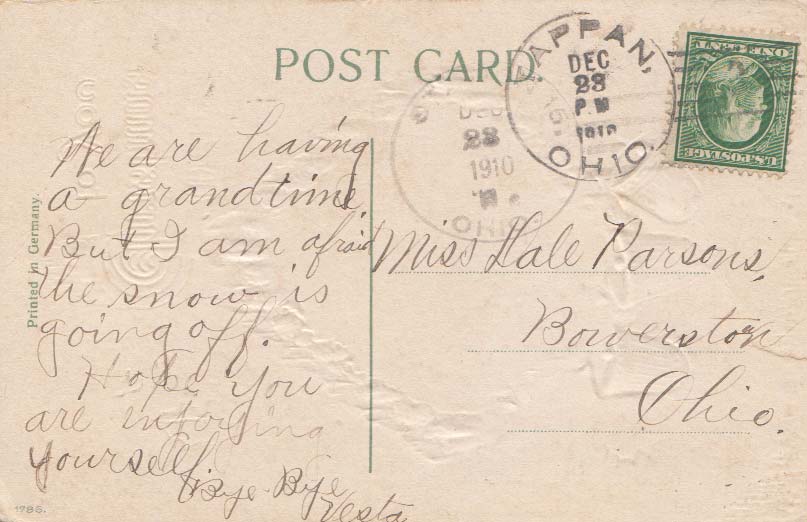 POST CARD.
TAPPAN,
DEC
23
P.M
1910
15
OHIO.
DEC
23
1910
OHIO
ONE CENT
U.S. POSTAGE
We are having
a grand time
But I am afraid
the snow is
going off.
Hope you
are injoying
yourself
Bye-Bye
Vesta
Miss Hale Parsons,
Bowerston
Ohio.
Printed in Germany.
1786.